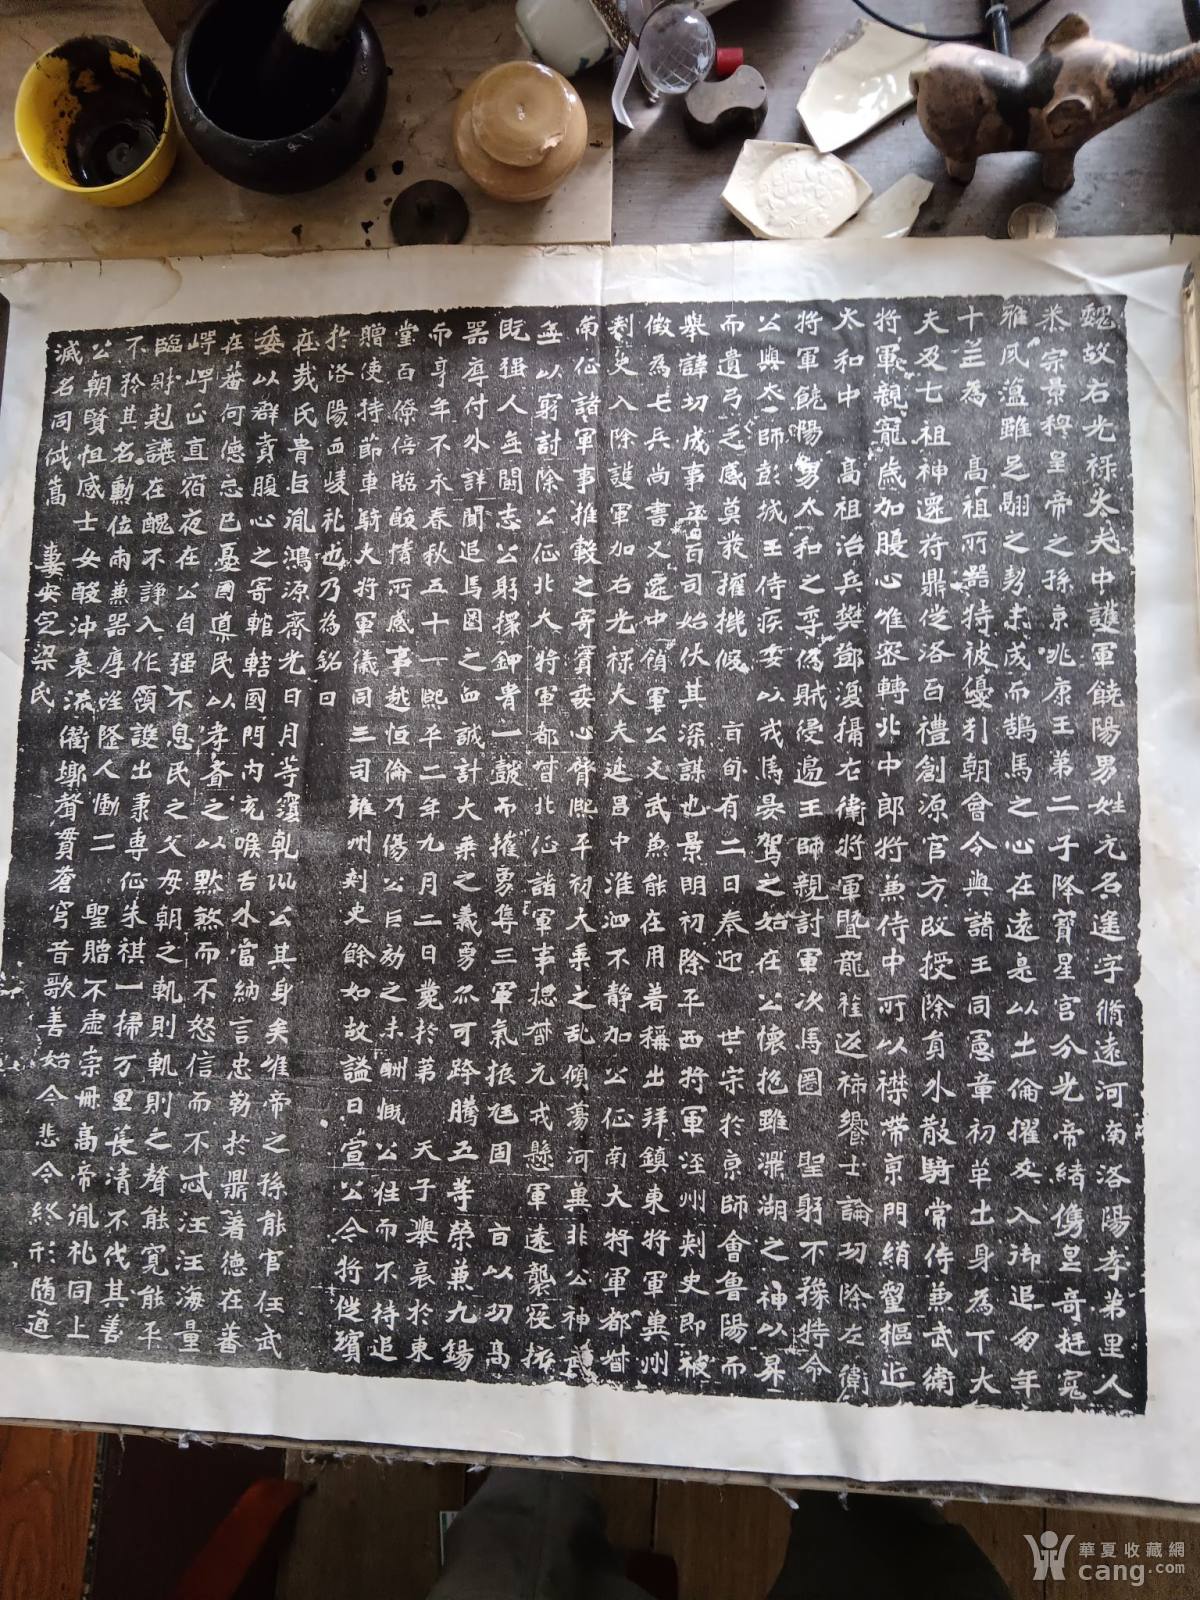 魏故右光祿大夫中護軍饒陽男姓元名遙字脩遠河南洛陽孝弟里人
恭宗景穆皇帝之孫京兆康王弟二子降寶星宮分光帝緒儁皇奇挺寬
雅夙薀雖足翮之勢未成而鵠馬之心在遠是以土倫擢交入御追匆年
十三為高祖所器特被優引朝會令與諸王同憲章初革土身為下大
夫及七祖神遷符鼎從洛百禮創源官方改授除員外散騎常侍兼武衛
將軍親寵歲加腹心唯密轉北中郎將兼侍中所以襟帶京門綃翟樞近
太和中高祖治兵樊鄧復攝左衛將軍暨龍旌返旆饗士論功除左衛
將軍饒陽男太和之季偽賊侵邊王師親討軍次馬圈聖躬不豫特令
公與太師彭城王侍疾委以戎馬晏駕之始在公懷抱雖鼎湖之神以昇
而遺弓之感莫發擁機候盲旬有二日奉迎世宗於京師會魯陽而
舉諱功成事平百司始伏其深謀也景明初除平西將軍涇州刺史即被
徵為七兵尚書又遷中領軍公文武兼能在用著稱出拜鎮東將軍冀州
刺史入除護軍加右光祿大夫延昌中淮泗不靜加公征南大將軍都督
南征諸軍事推轂之寄實委心膂熙平初大乘之乱傾蕩河冀非公神武
無以窮討除公征北大將軍都督北征諸軍事揔督元戎懸軍遠襲寇旅
既强人無關志公躬擐鉀胄一鼓而摧勇隽三軍氣振尫固百以功高
器厚付外詳聞追馬圈之血誠計大乘之義勇爪可跨騰五等榮兼九錫
而享年不永春秋五十一熙平二年九月二日薨於第天子舉哀於東
堂百僚倍臨酸情所感事越恒倫乃傷公臣効之未酬慨公往而不待追
贈使持節車騎大將軍儀同三司雍州刺史餘如故謚曰宣公令將徙殯
於洛陽西崚礼也乃為銘曰
在哉氏胄巨胤鴻源齊光日月等蘊乾㳅公其身矣維帝之孫能官任武
委以群責腹心之寄輨轄國門內充喉舌水當納言忠勒於鼎著德在蕃
在蕃何德忘已憂國導民以孝齊之以默煞而不怒信而不忒汪汪海量
崿崿正直宿夜在公自强不息民之父母朝之軌則軌則之聲能寬能平
臨財剋讓在醜不諍入作領護出秉專征朱祺一掃万里萇清不伐其善
不矜其名勳位兩兼器厚涯隆人慟二聖贈不虛崇冊高帝胤礼同上
公朝賢怛感士女酸沖哀流衢壤聲貫蒼穹昔歌善始今悲令終形隨道
減名同岱嵩妻安定梁氏
華夏收藏網
cang.com